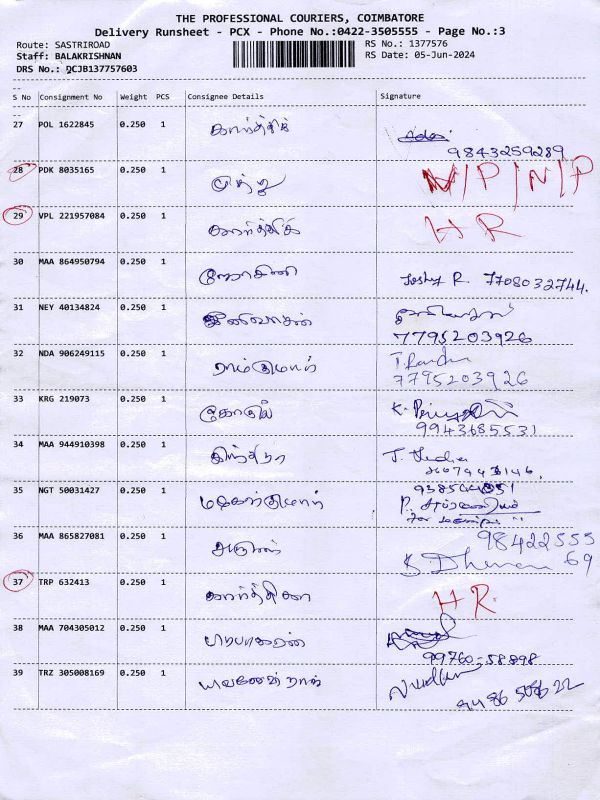 THE PROFESSIONAL COURIERS, COIMBATORE
Delivery Runsheet - PCX - Phone No.:0422-3505555 - Page No.:3
Route: SASTRIROAD RS No.: 1377576
Staff: BALAKRISHNAN RS Date: 05-Jun-2024
DRS No.: QCJB137757603
S No Consignment No Weight PCS Consignee Details Signature
27 POL 1622845 0.250 1 கார்த்திக்
9843259289
28 PDK 8035165 0.250 1 முத்து N/P/N/P
29 VPL 221957084 0.250 1 கார்த்திக் HR
30 MAA 864950794 0.250 1 ஜோசினி Joshy R. 7708032744.
31 NEY 40134824 0.250 1 இனிவாசன்
7795203926
32 NDA 906249115 0.250 1 ராம்குமார்
7795203926
33 KRG 219073 0.250 1 கோகுல்
9943685531
34 MAA 944910398 0.250 1 இந்திரா
35 NGT 50031427 0.250 1
36 MAA 865827081 0.250 1 அருண் 98422555
69
37 TRP 632413 0.250 1 கார்த்திகா HR.
38 MAA 704305012 0.250 1 பிரபாகரன்
99760-58898
39 TRZ 305008169 0.250 1